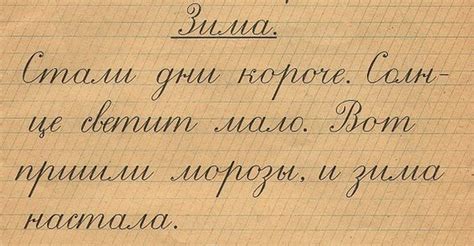 Зима.
Стали дни короче. Солн-
це светит мало. Вот
пришли морозы, и зима
настала.